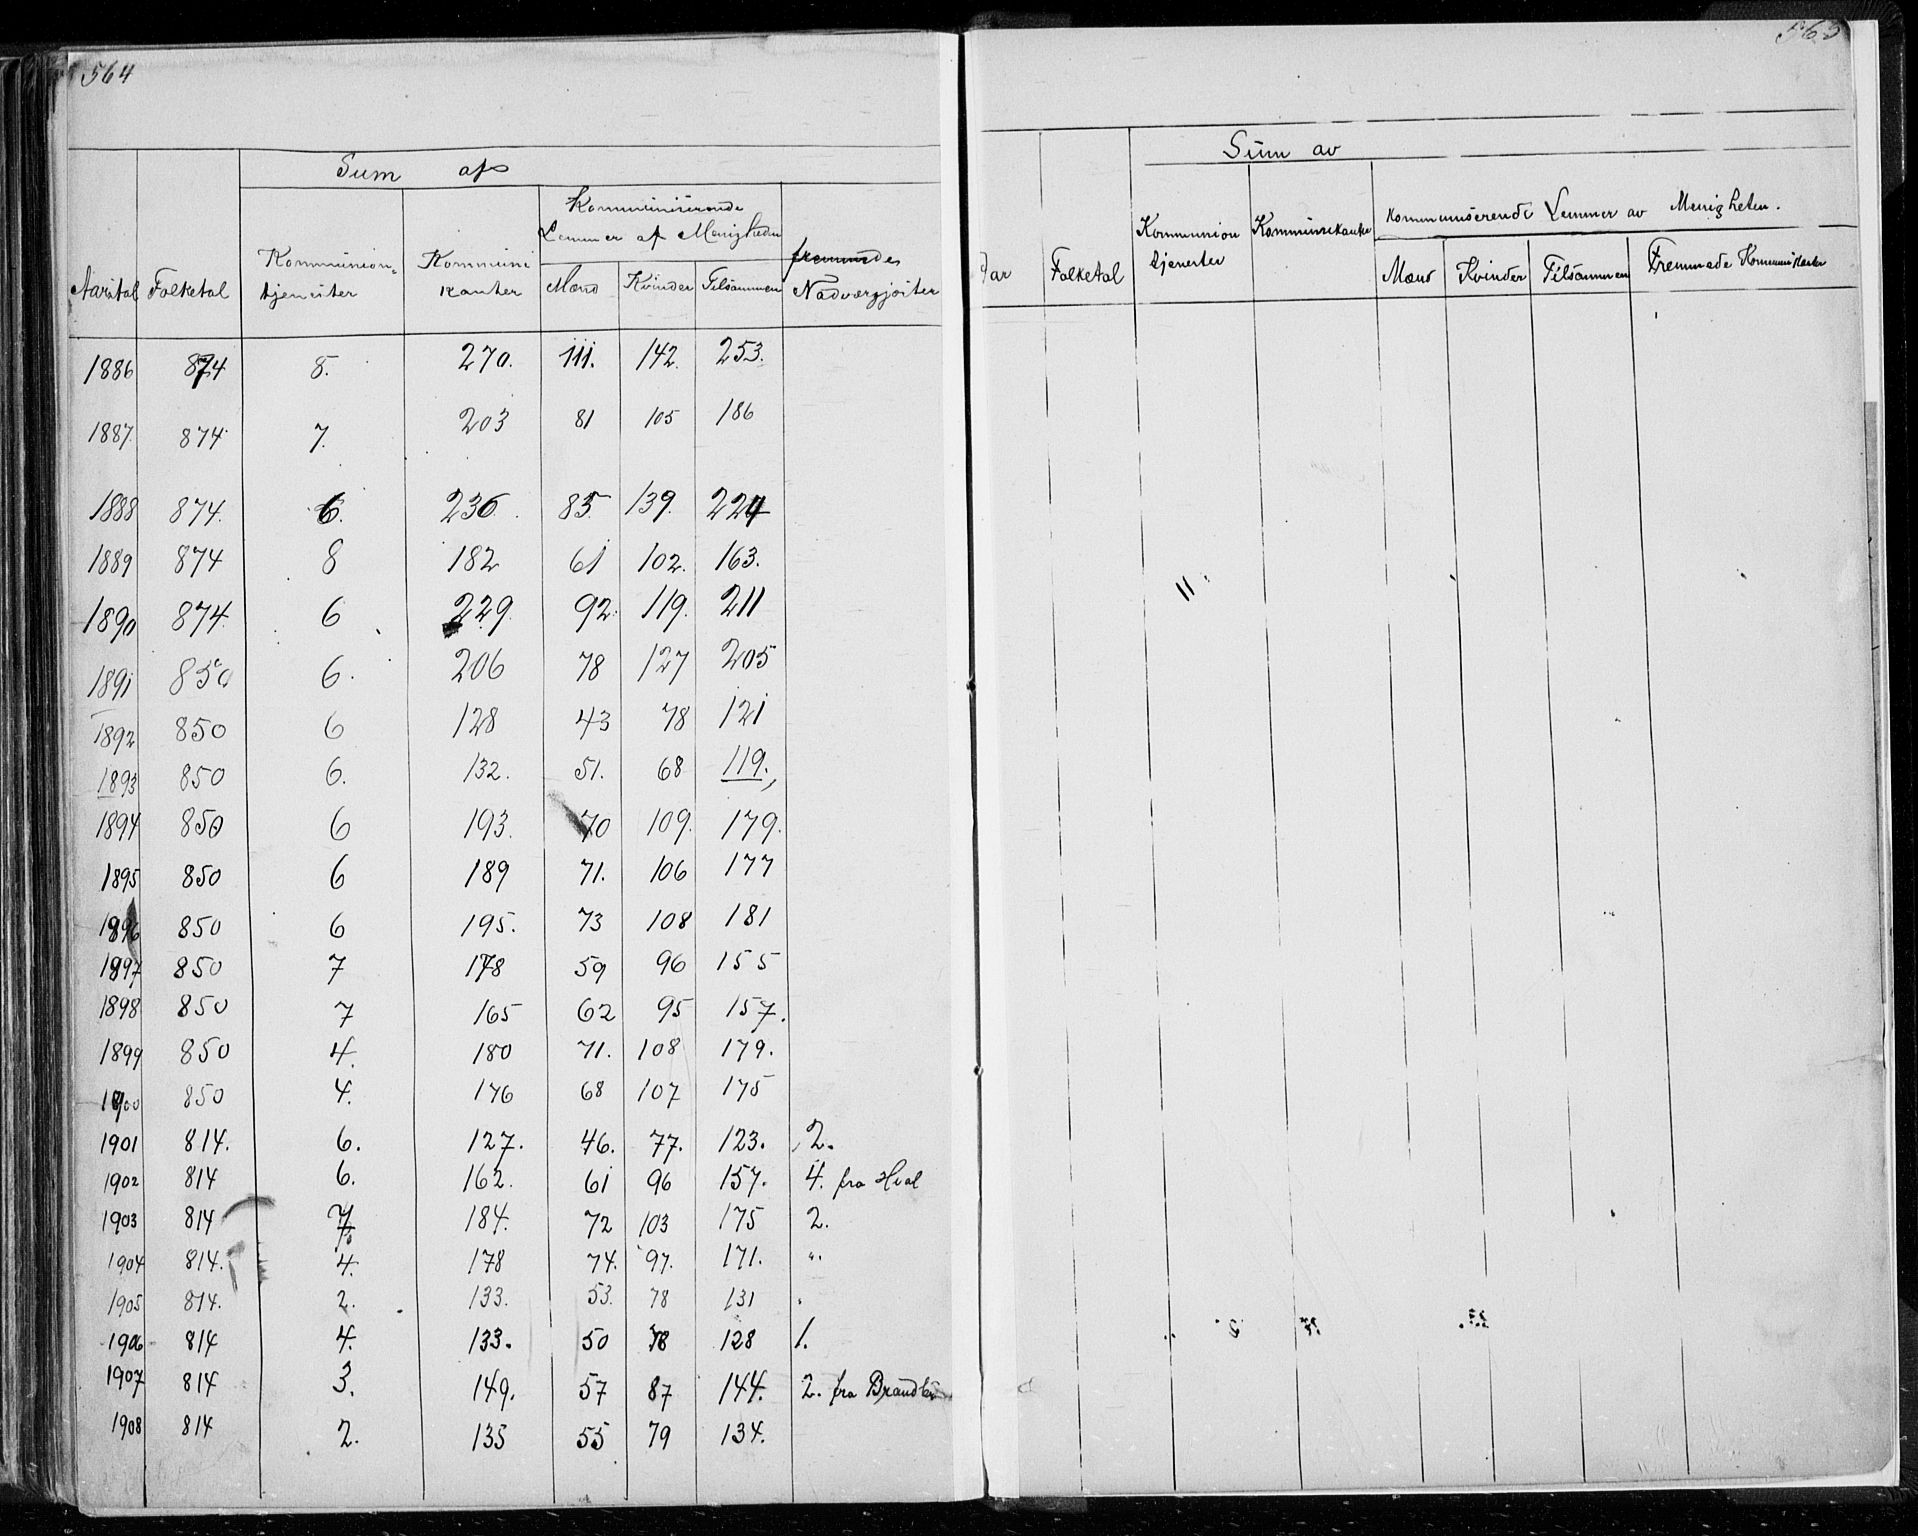 564
Sum af
Kommuniserende
Lemmer af Menigheden
Aarstal Folketal Kommunion- tjenester Kommuni kanter Mænd Kvinder Tilsammen fremmede Nadvergjester
1886 874 8. 270. 111. 142. 253.
1887. 874 7. 203 81 105 186
1888 874. 6. 236 85 139. 224
1889 874 8 182 61 102. 163.
1890 874. 6 229 92 119. 211
1891 850 6. 206 78 127 205
1892 850 6 128 43 78 121
1893 850 6. 132. 51. 68 119.
1894 850 6 193. 70 109. 179.
1895 850 6 189 71. 106 177
1896 850 6 195. 73 108 181
1897 850 7 178 59 96 155
1898 850 7 165 62 95 157.
1899 850 4. 180 71. 108 179.
1900 850 4. 176 68 107 175
1901 814. 6. 127. 46. 77. 123. 2.
1902 814 6. 162. 61 96 157. 4. fra Hval
1903 814 7 184. 72 103 175 2.
1904 814. 4. 178 74. 97. 171. ".
1905 814. 2. 133. 53. 78 131
1906 814 4. 133. 50 78 128 1.
1907 814 3. 149. 57 87 144. 2. fra
1908 814 2. 135 55 79 134.
565
Sum av
Kommuniserende Lemmer av Menigheten.
Aar Folketal Kommunion tjenester Kommunikanter Mænd Kvinder Tilsammen Fremmede Kommunikanter